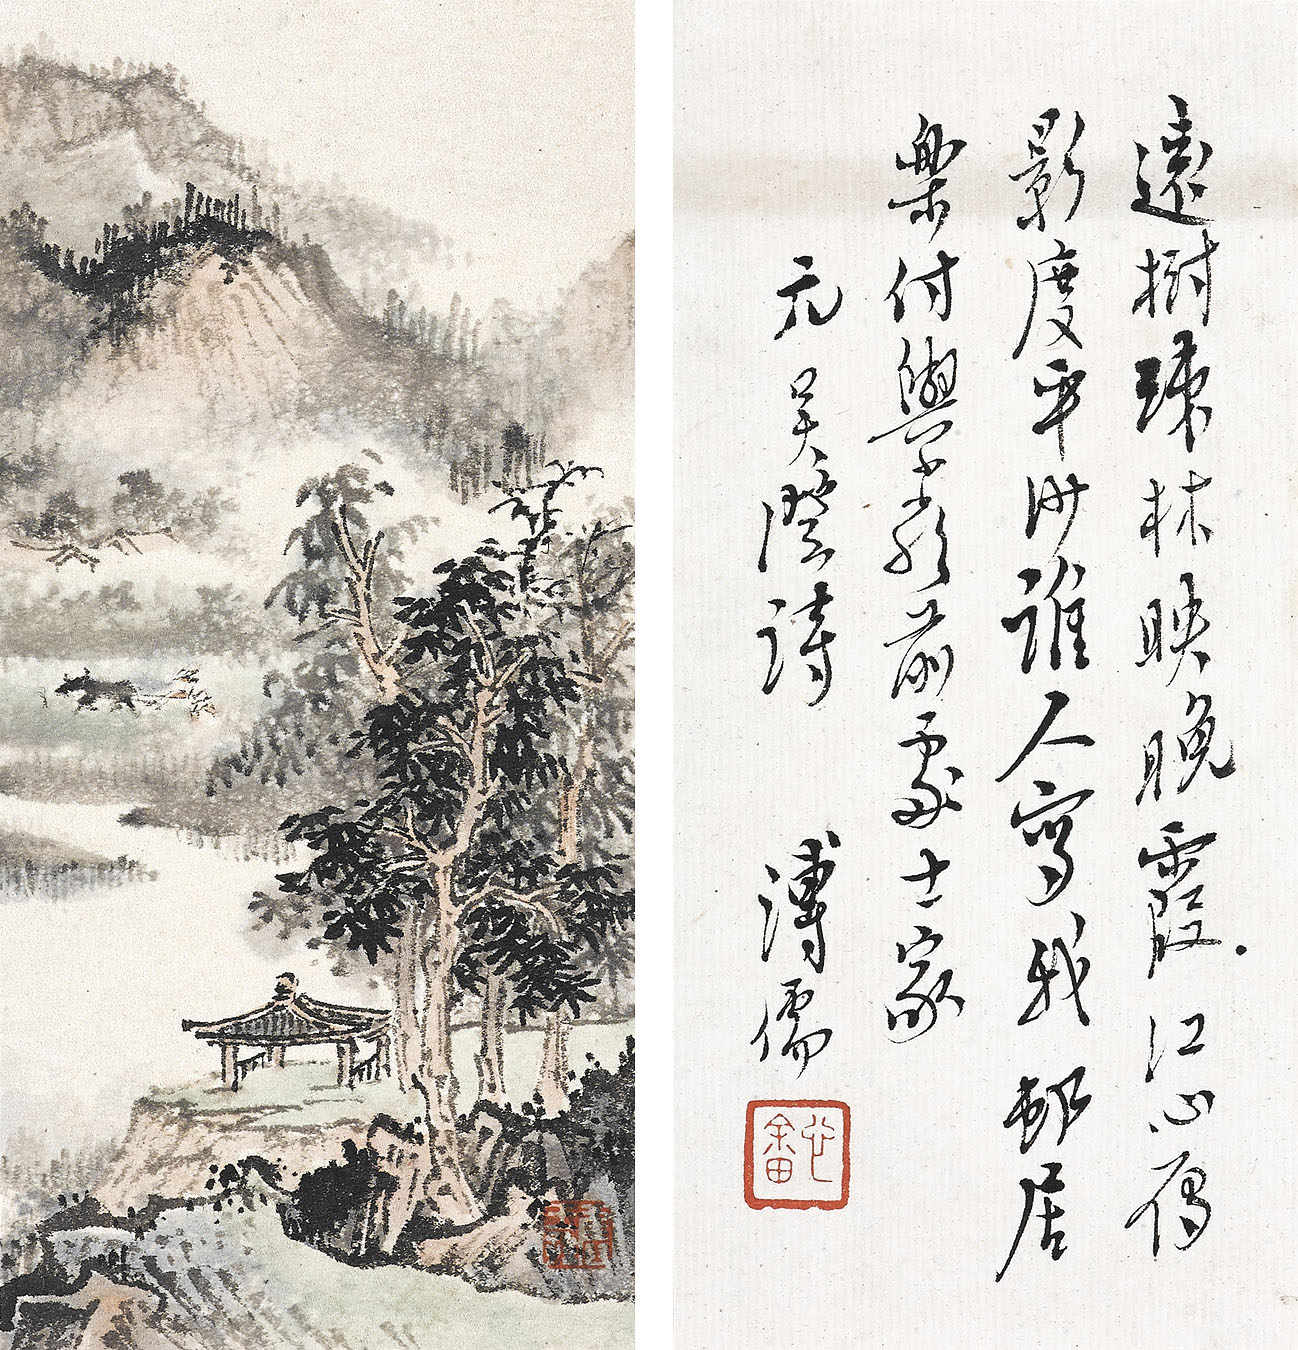 遠樹踈林映晚霞江心雁
影度平沙誰人寫我邨居
樂付與嶺前處士家
元吳澄詩 溥儒